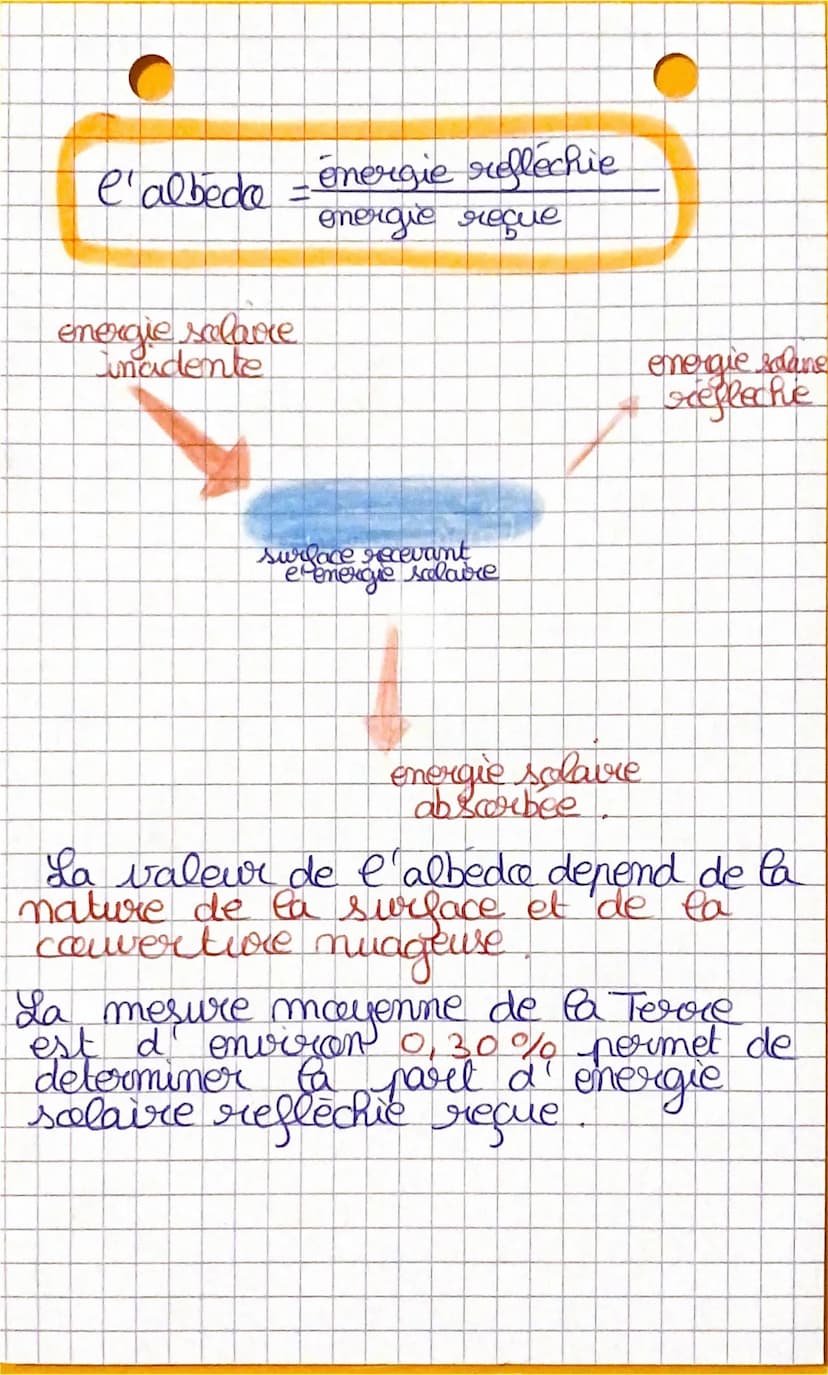 l'albédo = énergie refléchie
energie reçue
energie solaire
incidente
energie solaire
réflechie
surface recevant
l'energie solaire
energie solaire
absorbée.
La valeur de l'albédo depend de la
nature de la surface et de la
couverture nuageuse.
La mesure moyenne de la Terre
est d'environ 0,30% permet de
determiner la part d'énergie
solaire refléchie reçue.